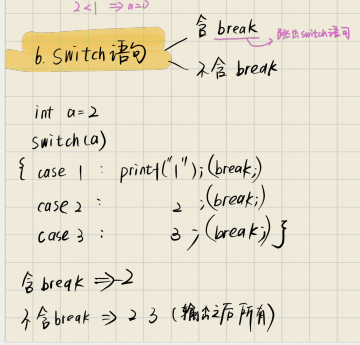 2<1 ⇒ a=0
含 break
跳出switch语句
6. Switch语句
不含 break
int a=2
switch(a)
{ case 1 : printf("1");(break;)
case 2 : 2 ;(break;)
case 3 : 3 ;(break;) }
含 break ⇒ 2
不含 break ⇒ 2 3 (输出之后所有)